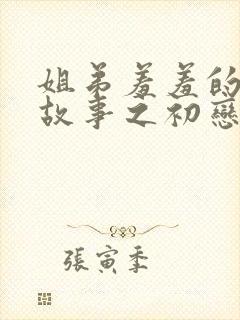 姐弟羞羞的
故事之初戀
張寅季